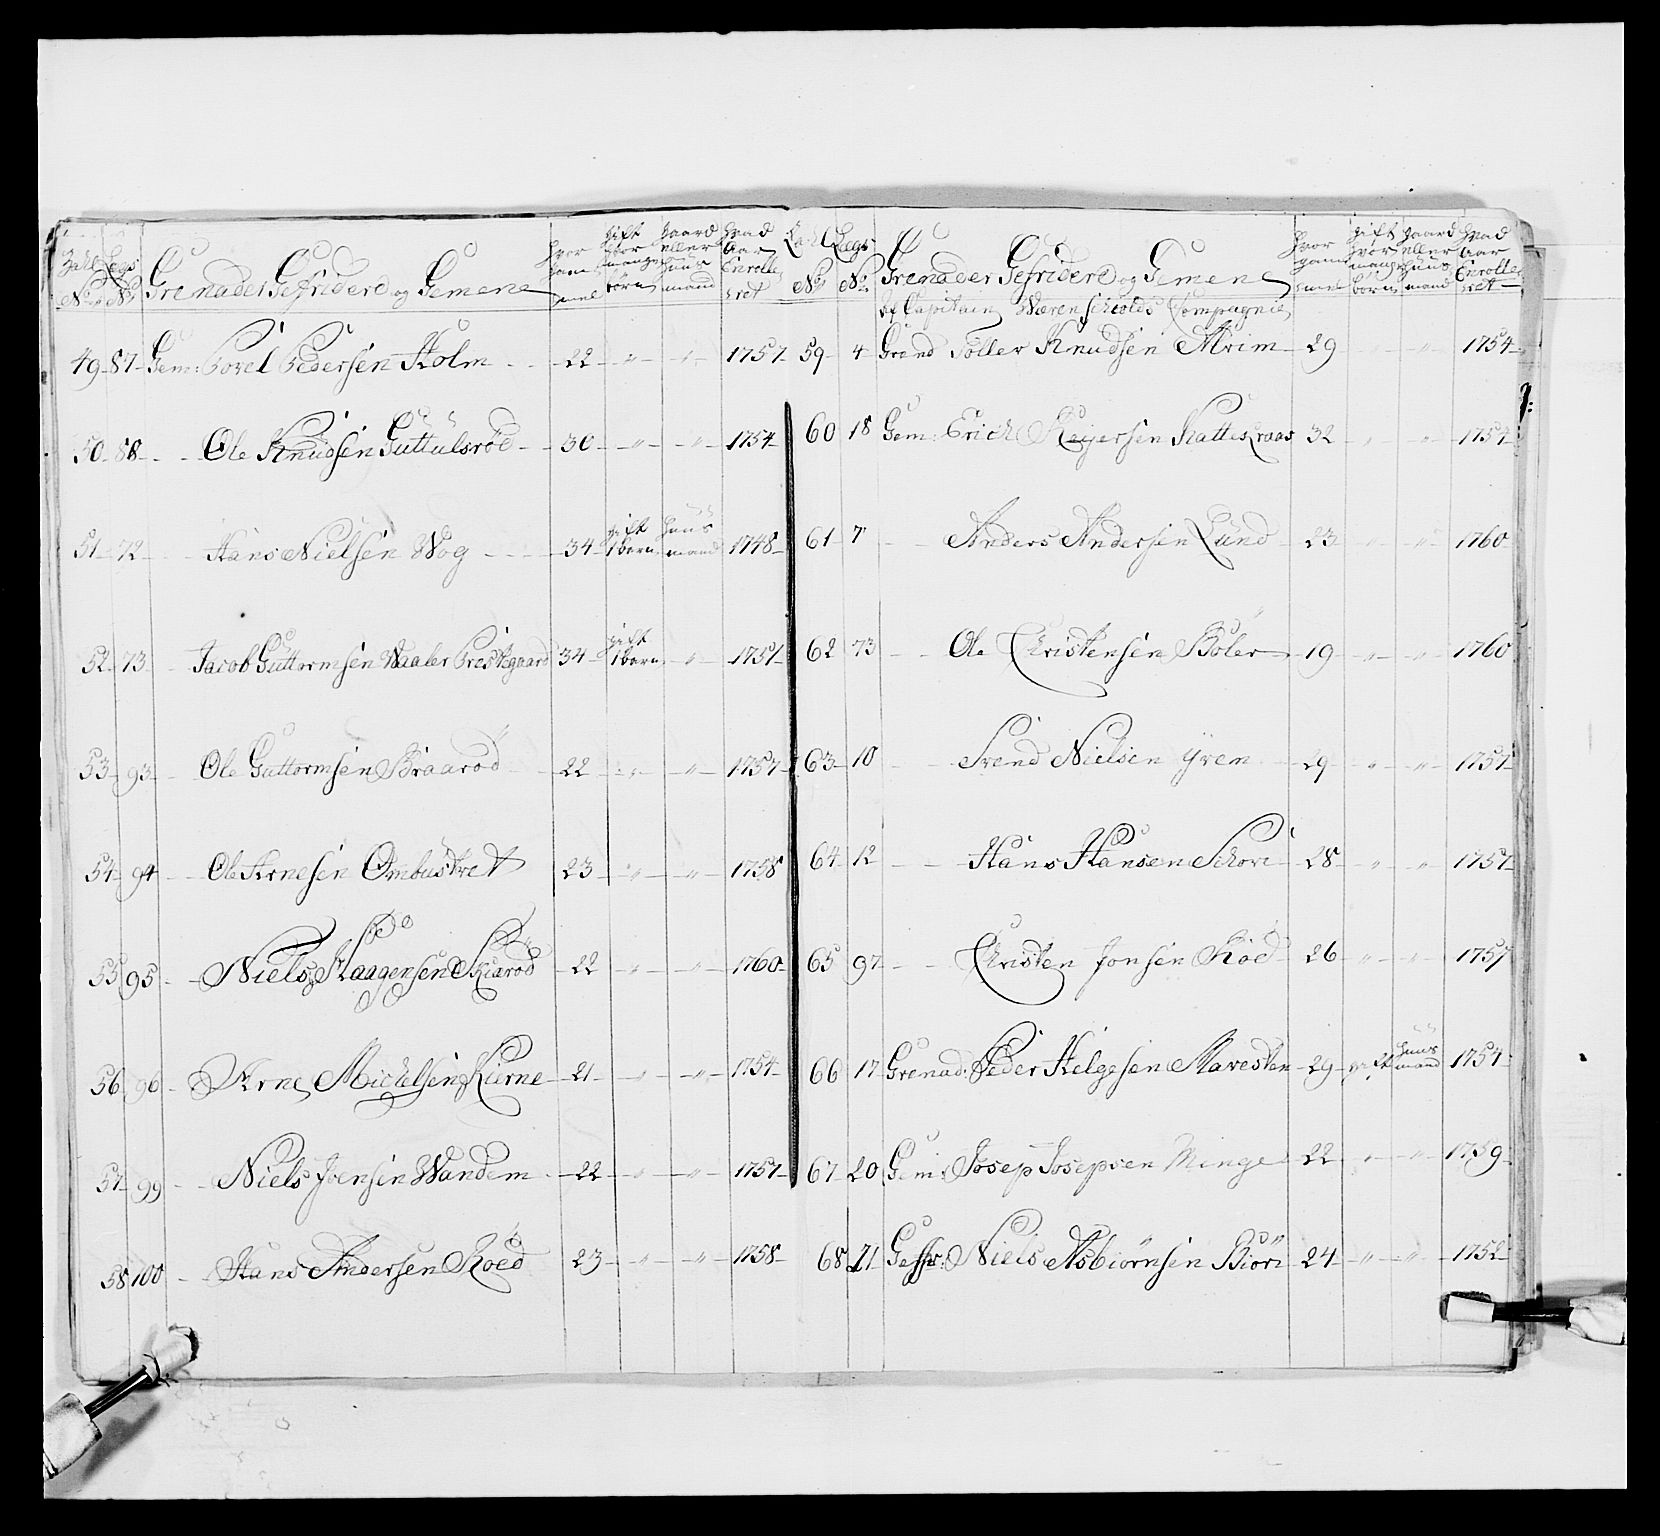 Zahl Legs Grenader Gefridere og Gemene hvor gam̅el gift hvor mange børn gaard eller huus mand hvad Aar Enrolleret
No: No:
49 87 Gem: Povel Pedersen Holm 22 " " 1757
50 88 Ole Knudsen Guttulsröd 30 " " 1754
51 72 Hans Nielsen Wog 34 gift 1 børn huus mand 1748
52 73 Jacob Guttormsen Waaler Prestegaard 34 gift 1 børn " 1757
53 93 Ole Guttormsen Braaröd 22 " " 1757
54 94 Ole Arnesen Ombustvet 23 " " 1758
55 95 Niels Haagensen Kiaröd 22 " " 1760
56 96 Arne Michelsen Kierne 21 " " 1754
57 99 Niels Joensen Wandem 22 " " 1757
58 100 Hans Andersen Roed 23 " " 1758
Zahl Legs Grenader Gefridere og Gemene hvor gam̅el gift hvor mange børn gaard eller huus mand hvad Aar Enrolleret
No: No:
af Capitain Værenschiolds Compagnie
59 4 Grend Toller Knudsen 29 " " 1754
60 18 Gem: Erich Reyersen Katteskraas 32 " " 1754
61 7 Anders Andersen Lund 23 " " 1760
62 73 Ole Christensen Böler 19 " " 1760
63 10 Svend Nielsen ÿven 29 " " 1757
64 12 Hans Hansen Schovi 28 " " 1757
65 97 Christen Jonsen Röed 26 " " 1757
66 17 Grenad: Peder Helgesen Navesten 29 gift huus mand 1754
67 20 Gem: Josep Josepsen Minge 22 " " 1759
68 21 Gefr: Niels Asbiörnsen Biöri 24 " " 1752